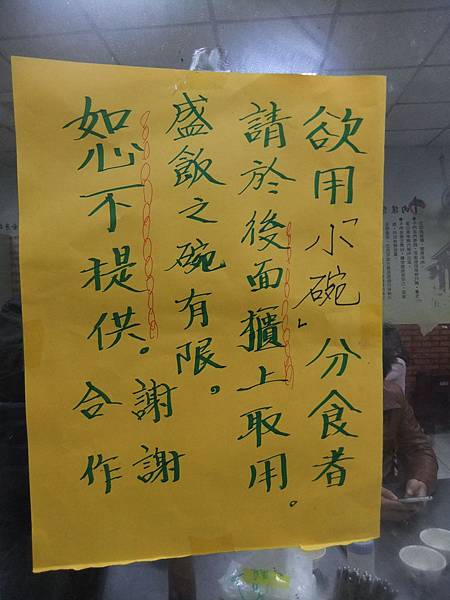 欲用「小碗」分食者
請於後面櫃上取用。
盛飯之碗有限，
恕不提供。謝謝
合作